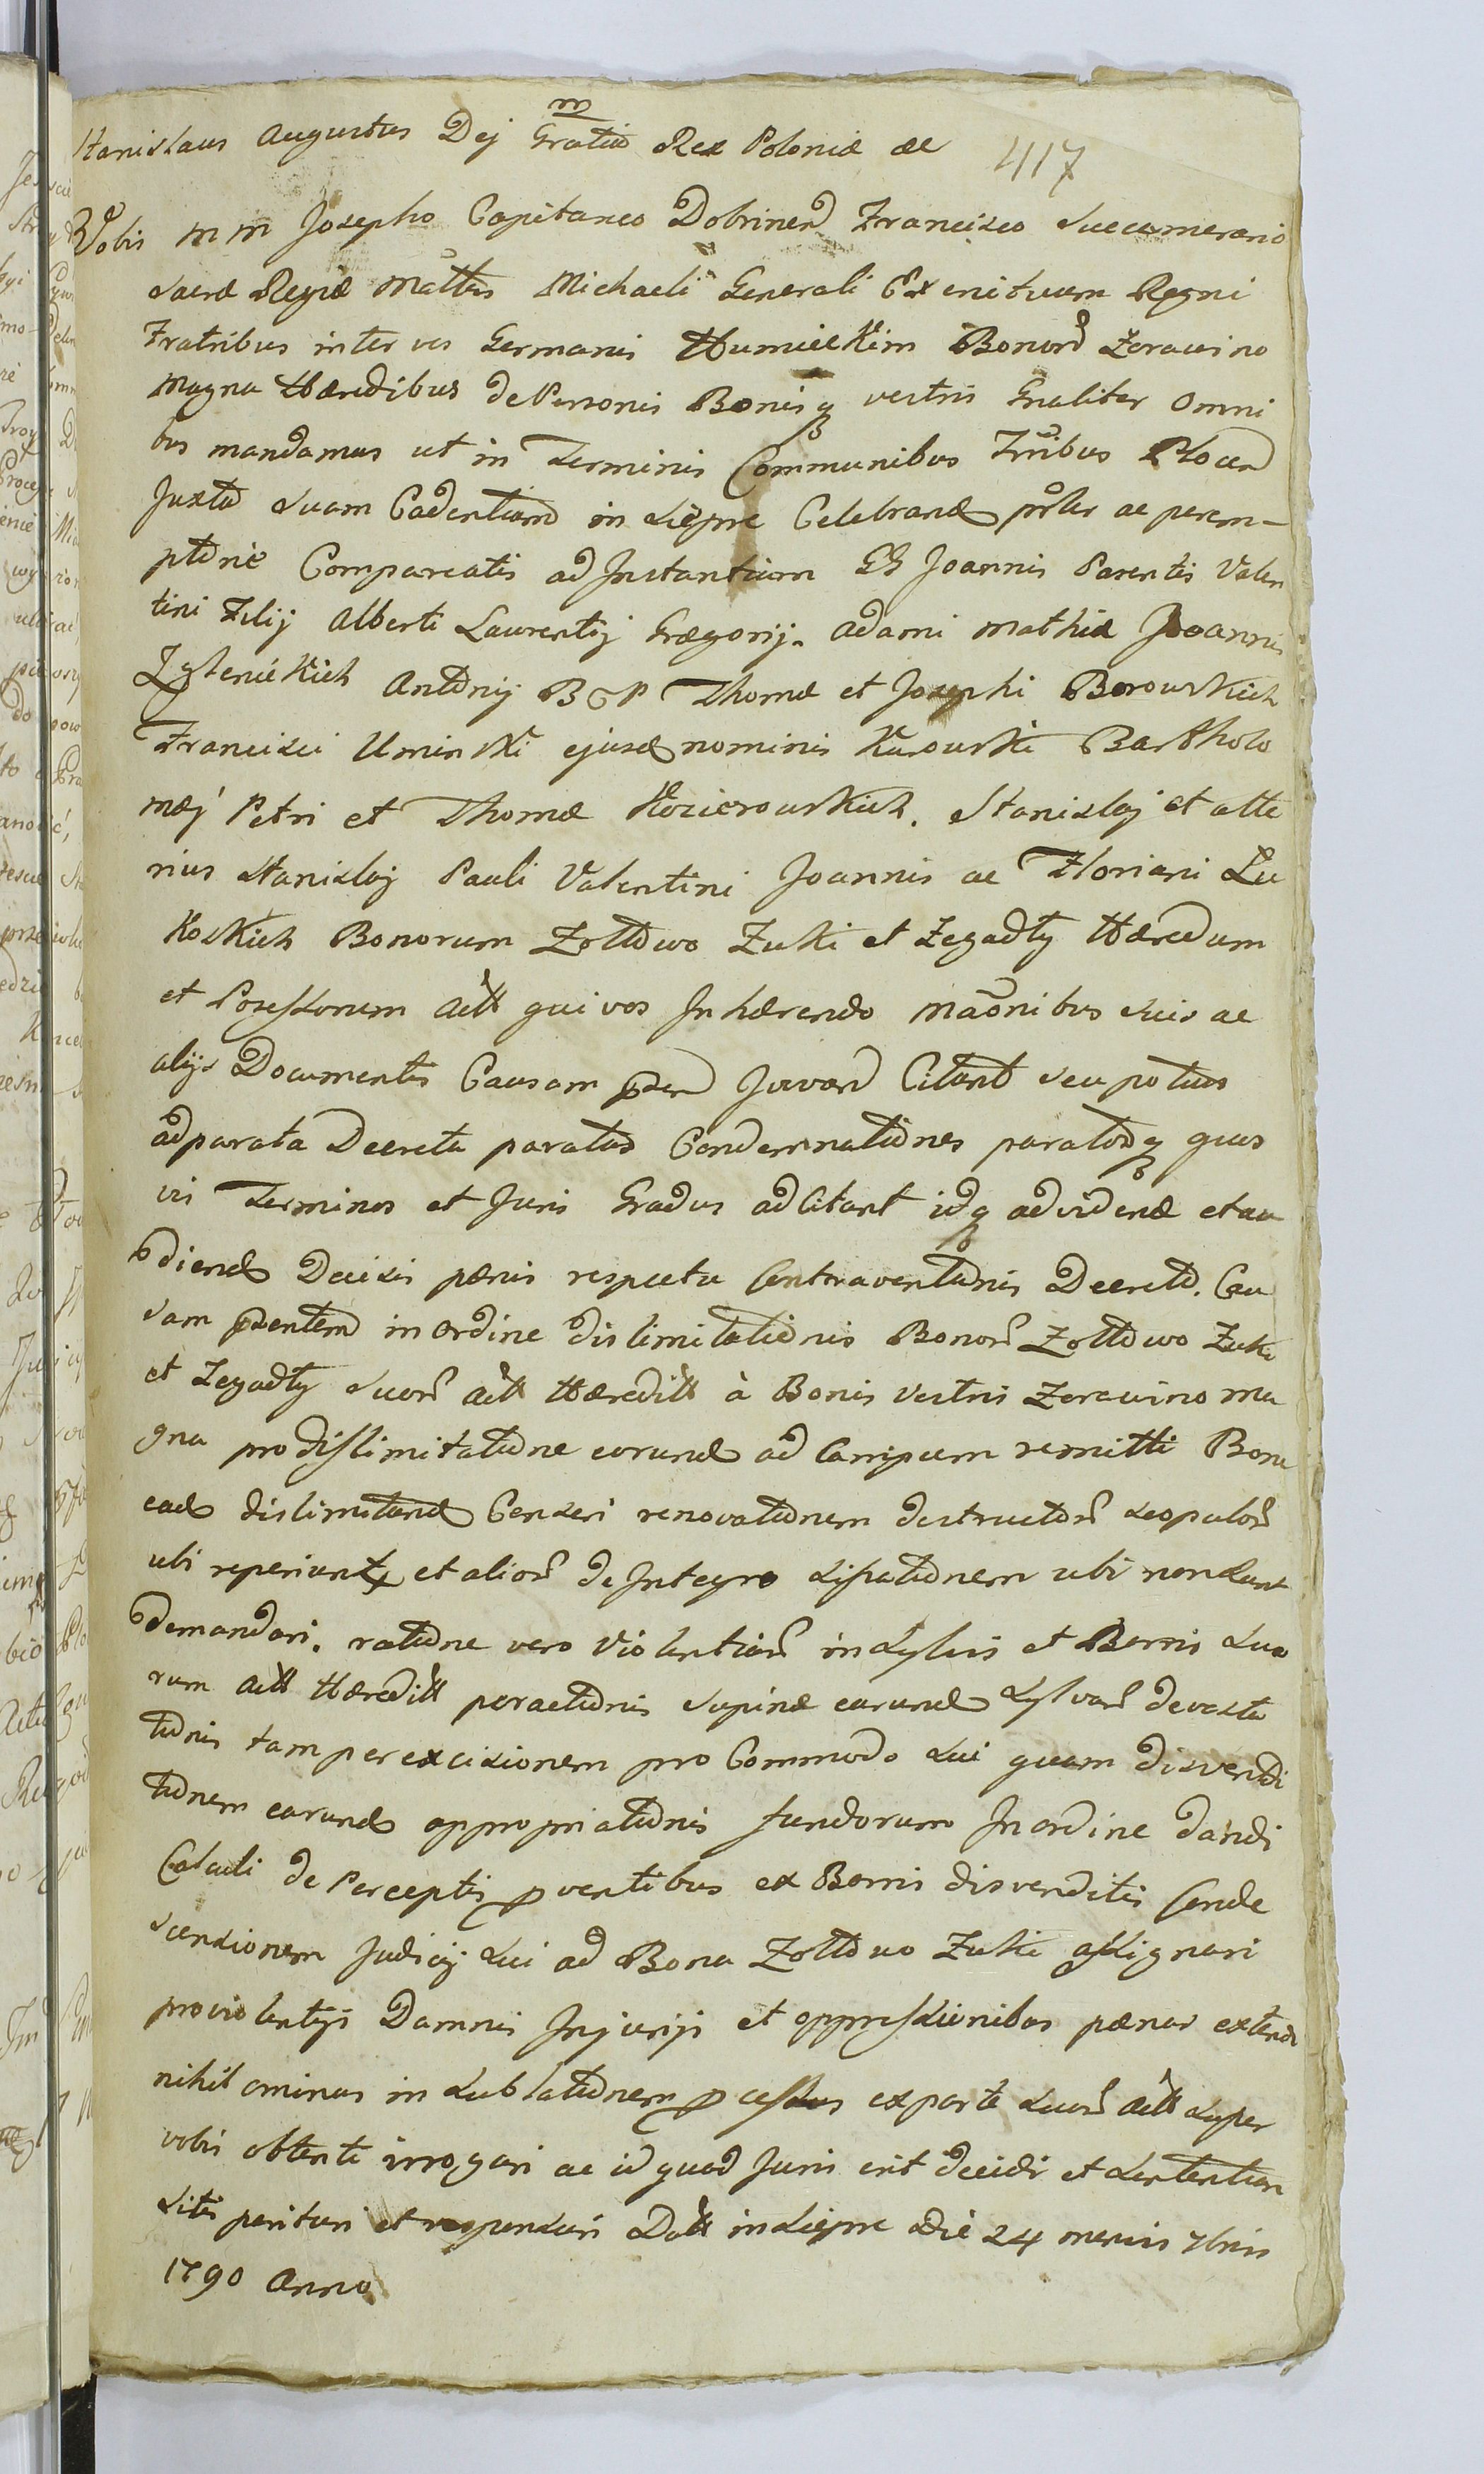 m
Stanislaus Augustus Dej Gratia Rex Poloniæ ac
417
Vobis M M Josepho Capitaneo Dobrinen Francisco Succamerario
Sacræ Regiæ Mattis Michaeli Generali Exercituum Regni
Fratribus inter vos Germanis Humieckim Bonor Zorawino
Magna Hæredibus de Personis Bonisq vestris Gnaliter Omni
bus mandamus ut in Terminis Communibus Trribus Plocen
Juxta Suam Cadentiam in Siepre Celebrand prler ac perem-
ptorie Compareatis ad Instantiam GG Joannis Parentis Valen
tini Filij Alberti Laurentij Grægorij Adami Mathiæ Joannis
Zglenickich Antonij B et P Thomæ et Josephi Borowskich
Francisci Uminski ejusd nominis Kurowski Bartholo
mæj Petri et Thomæ Kozierowskich. Stanislaj et alte
rius Stanislaj Pauli Valentini Joannis ac Floriani Lu
koskich Bonorum Zottowo Zuki et Zegadty Hæredum
et Possessorum Actt qui vos Inhærendo Maonibus suis ac
alijs Documentis Causam pden Juvan Citant seu potius
ad parata Decreta paratas Condemnationes paratosq quos
vis Terminos et Juris Gradus ad Citant idq ad videnđ et au
diend Decisis pænis respectu Contraventionis Decreto. Cau
sam pdentem in ordine dislimitationis Bonor Zottowo Zuki
et Zegadty Suor Actt Hæreditt à Bonis vestris Zorawino Ma
gna pro disslimitatione eorund ad Campum remitti Bona
ead dislimitand Censeri renovationem destructor Scopulor
ubi reperiunt et alior de Integro Sipationem ubi non sunt
demandari. ratione vero violentiar in Sylvis et Borris Suo
rum Actt Hæreditt peractionis Supinæ earund Sylvar devasta
tionis tam per excisionem pro Commodo Sui quam disvendi
tionem earund appropriationis fundorum In ordine dandi
Calculi de Perceptis pventibus ex Borris disvenditis Conde
scensionem Judicij Sui ad Bona Zottowo Zuki assignari
pro violentijs Damnis Injurijs et oppressionibus pænas extendi
nihil ominus in Sublationem pcessus ex parte Suor Actt super
vobis obtenti irrogari ac id quod Juris erit decidi et Sententiam
Litis perituri et responsuri Datt in Siepre Die 24 mensis 7bris
1790 Anno